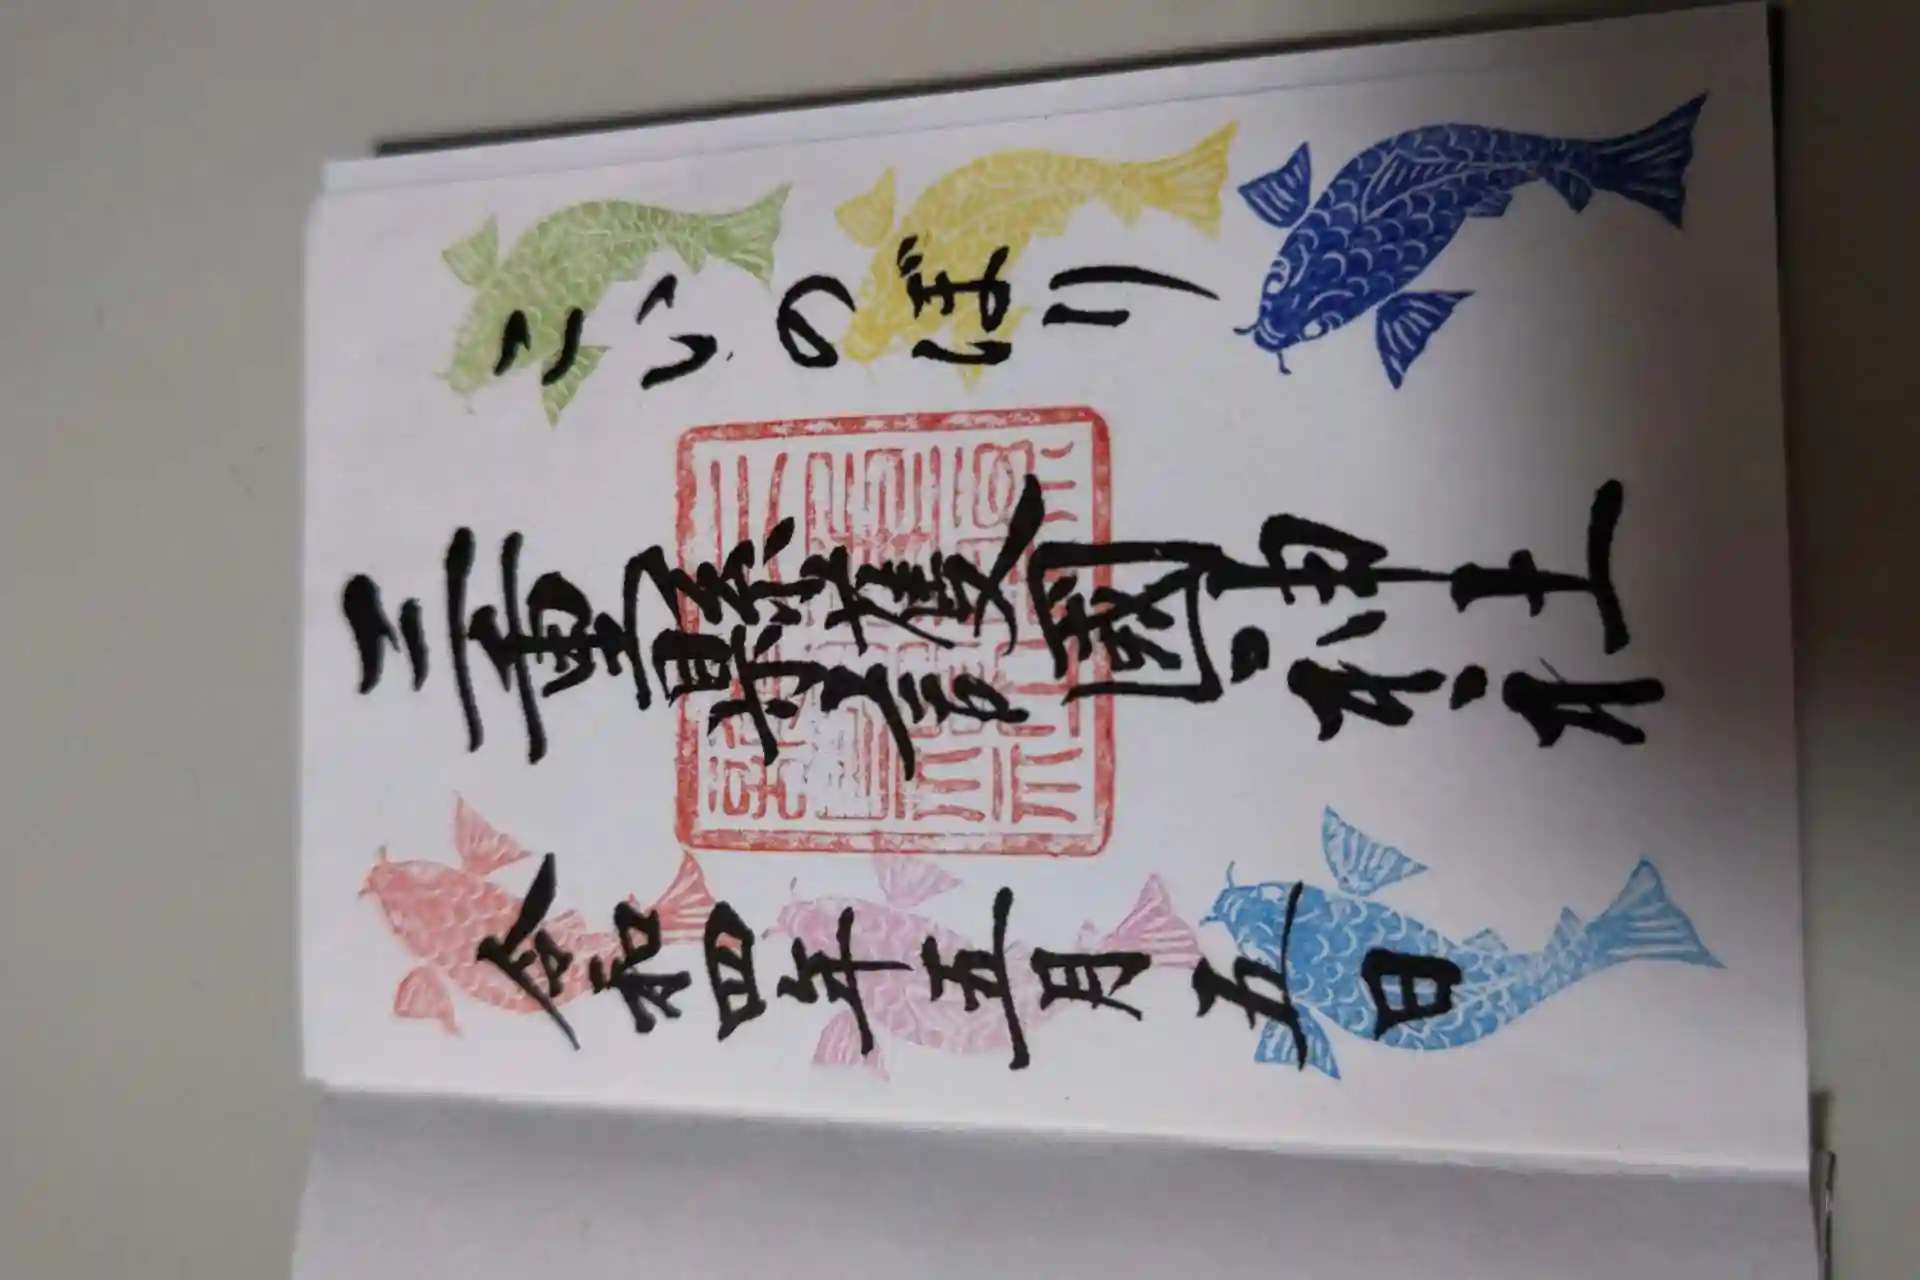 こいのぼり
三重縣護國神社
令和四年五月五日